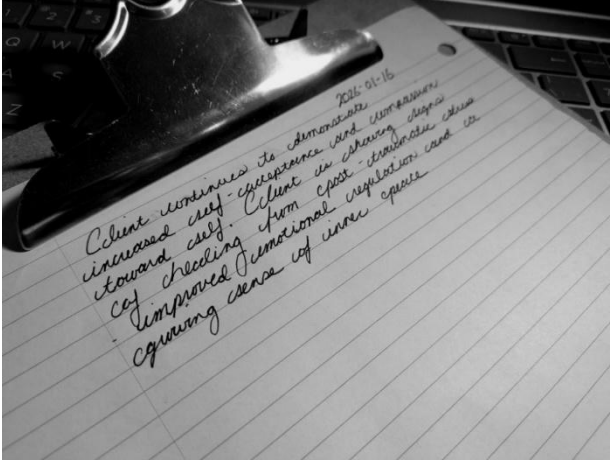 2026-01-16
Client continues to demonstrate
increased self-acceptance and compassion
toward self. Client is showing signs
of healing from post-traumatic stress
- improved emotional regulation and a
growing sense of inner peace